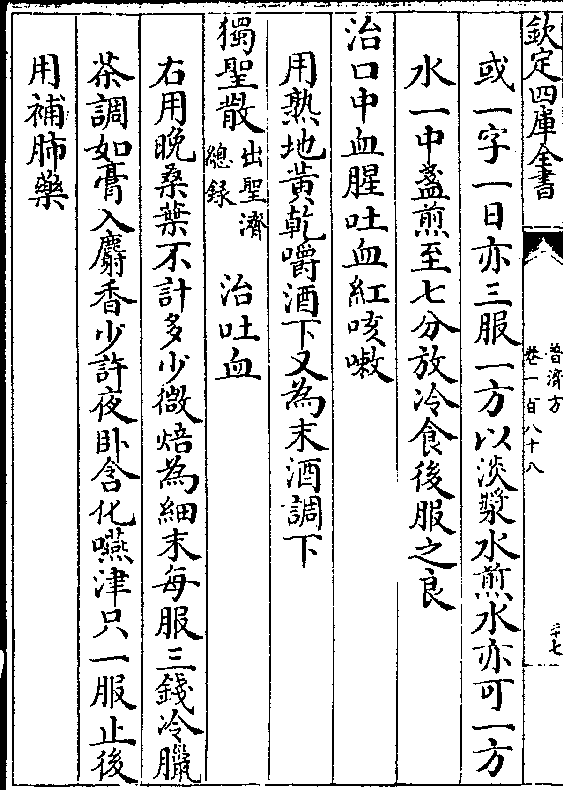 欽定四庫全書
普濟方
卷一百八十八
二十七
或一字一日亦三服一方以淡漿水煎水亦可一方
水一中盞煎至七分放冷食後服之良
治口中血腥吐血紅咳嗽
用熟地黄乾嚼酒下又為末酒調下
獨聖散出聖濟總録 治吐血
右用晚桑葉不計多少微焙為細末每服三錢冷臘
茶調如膏入麝香少許夜卧含化嚥津只一服止後
用補肺藥